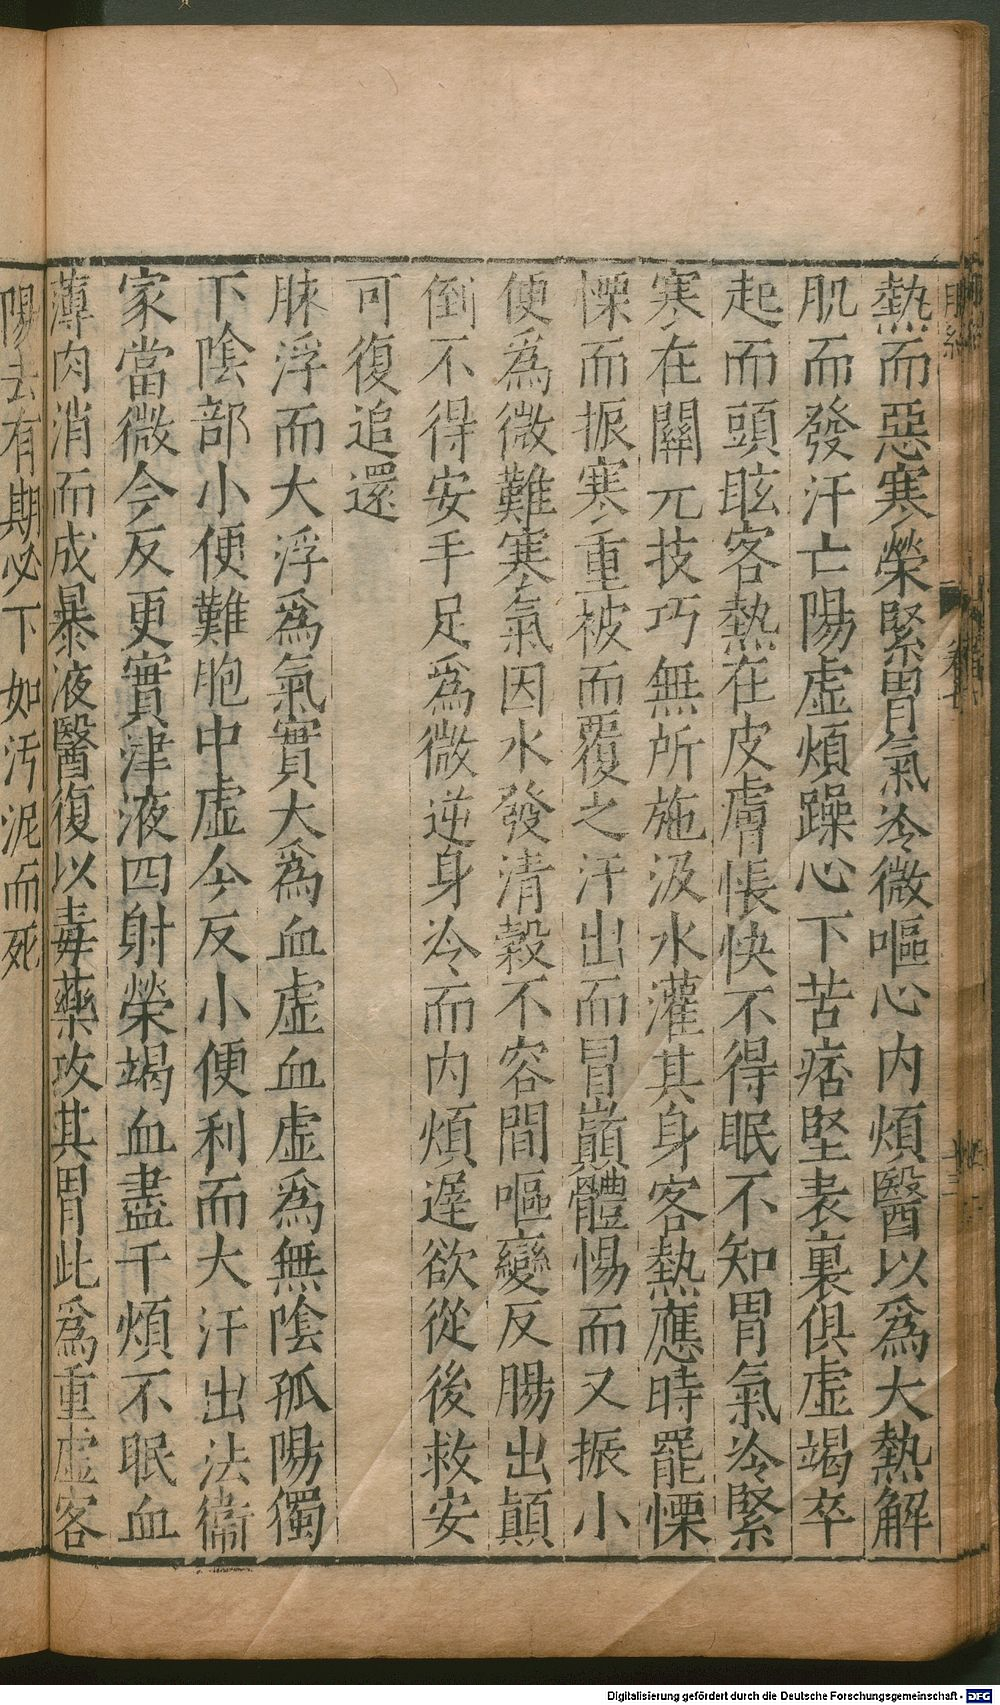 熱而惡寒榮緊胃氣冷微嘔心内煩醫以爲大熱解
肌而發汗亡陽虛煩躁心下苦痞堅表裏俱虛竭卒
起而頭眩客熱在皮膚悵快不得眠不知胃氣冷緊
寒在關元技巧無所施汲水灌其身客熱應時罷慄
慄而振寒重被而覆之汗出而冒巔體惕而又振小
便爲微難寒氣因水發清穀不容間嘔變反腸出顛
倒不得安手足爲微逆身冷而内煩遲欲從後救安
可復追還
脉浮而大浮爲氣實大爲血虛血虛爲無陰孤陽獨
下陰部小便難胞中虛今反小便利而大汗出法衞
家當微今反更實津液四射榮竭血盡干煩不眠血
薄肉消而成暴液醫復以毒藥攻其胃此爲重虛客
陽去有期必下如汚泥而死
Digitalisierung gefördert durch die Deutsche Forschungsgemeinschaft - DFG